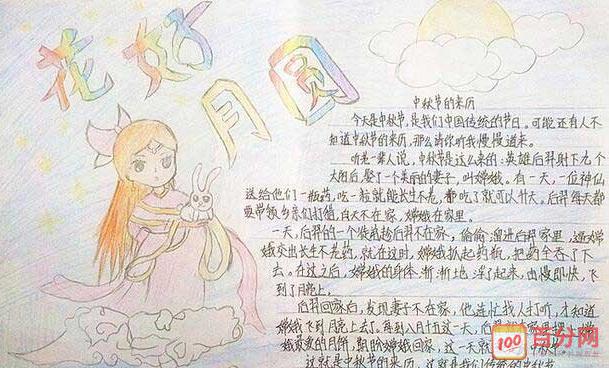 花好
月圆
中秋节的来历
今天是中秋节,是我们中国传统的节日。可能还有人不
知道中秋节的来历,那么请你听我慢慢道来。
听老一辈人说,中秋节是这么来的:英雄后羿射下九个
太阳后,娶了一个美丽的妻子,叫嫦娥。有一天,一位神仙
送给他们一瓶药,吃一粒就能长生不老,都吃了就可以升天。后羿每天都
要带领乡亲们打猎,白天不在家,嫦娥在家里。
一天,后羿的一个徒弟趁后羿不在家,偷偷溜进后羿家里,逼嫦
娥交出长生不老药,就在这时,嫦娥抓起药瓶,把药全吞了下
去。在这之后,嫦娥的身体渐渐地浮了起来,由慢即快,飞
到了月亮上。
后羿回家后,发现妻子不在家,他连忙找人打听,才知道
嫦娥飞到月亮上去了,每到八月十五这一天,后羿
娥最爱的月饼,期盼嫦娥回家,这一天就
这就是中秋节的来历,这就是我们传统的中秋节
100
百分网